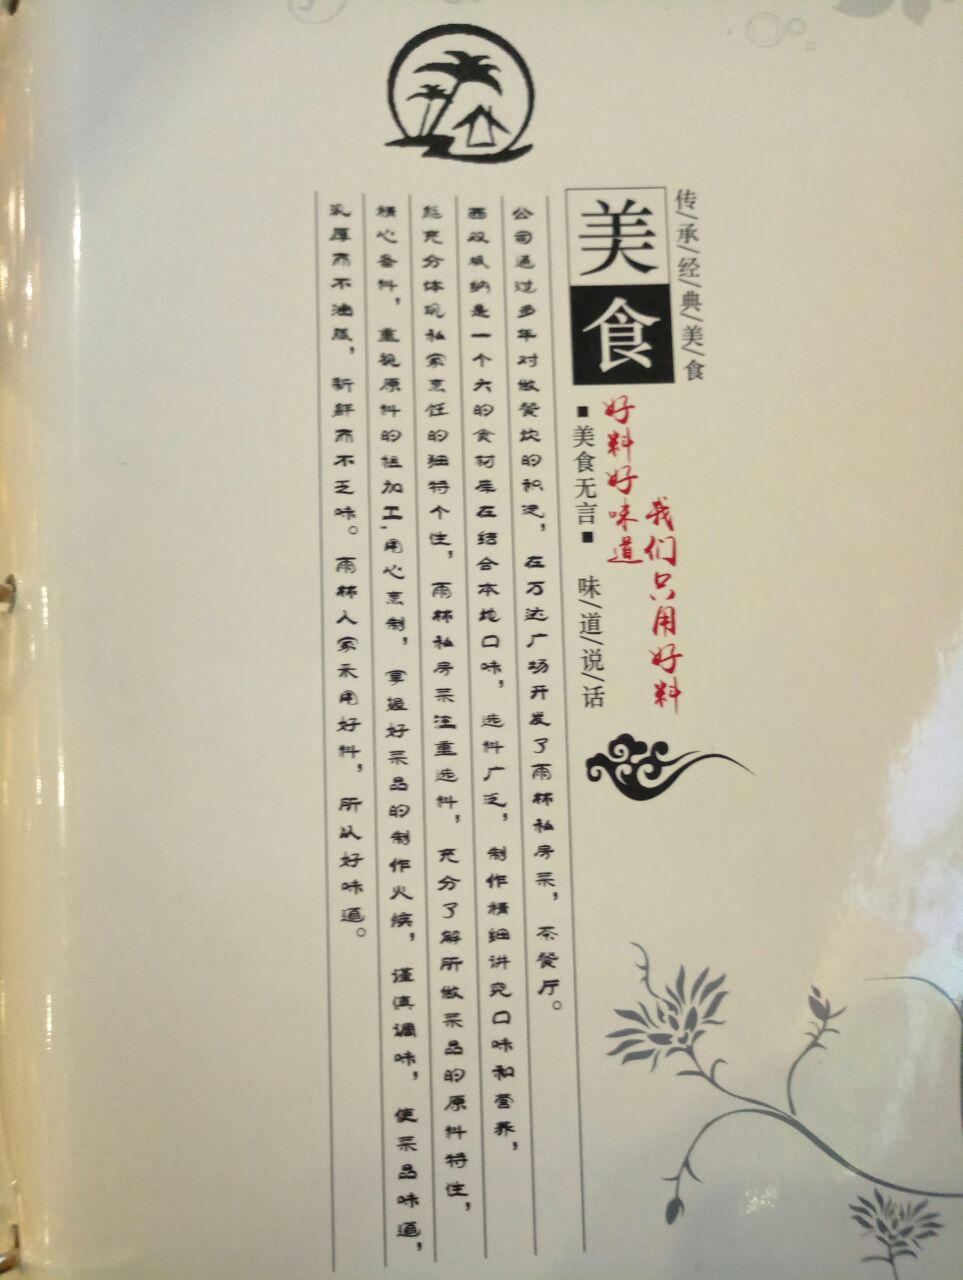 传/承/经/典/美/食
美食
我们只用好料
好料好味道
■美食无言■ 味/道/说/话
公司通过多年对做餐饮的积淀，在万达广场开发了雨林私房菜，茶餐厅。
西双版纳是一个大的食材库在结合本地口味，选料广泛，制作精细讲究口味和营养，
能充分体现私家烹饪的独特个性，雨林私房菜注重选料，充分了解所做菜品的原料特性，
精心备料，重视原料的粗加工，用心烹制，掌握好菜品的制作火候，谨慎调味，使菜品味道，
乳厚而不油腻，新鲜而不乏味。雨林人家禾用好料，所以好味道。